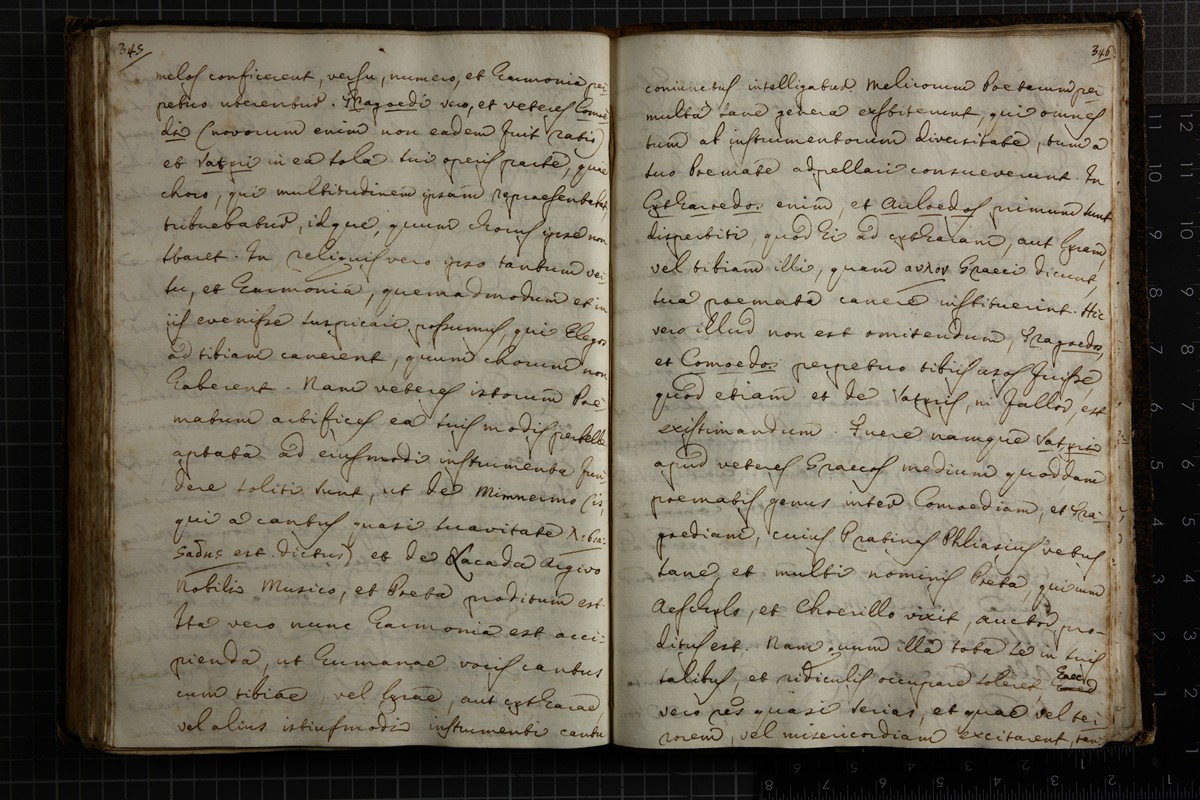 345
melos conficerent, versu, numero, et Harmonia per
petuo uterentur. Tragoedi vero, et veteres Comoe
di (novorum enim non eadem fuit ratio)
et Satyri in ea sola sui operis parte, quae
choro, qui multitudinem ipsam repraesentabat,
tribuebatur, idque, quum chorus ipse non
staret. In reliquis vero ipso tantum ver
su, et Harmonia, quemadmodum et in
iis evenisse suspicari possumus, qui Elegos
ad tibiam canerent, quum chorum non
haberent. Nam veteres istorum Poe
matum artifices ea suis modis perbelle
aptata ad eiusmodi instrumenta fun
dere soliti sunt, ut de Mimnermo (is,
qui a cantus quasi suavitate
est dictus) et de Sacada Argivo
Nobili Musico, et Poeta proditum est.
Ita vero nunc Harmonia est acci-
pienda, ut humanae vocis cantus
cum tibiae, vel lyrae, aut cytharae
vel alius istiusmodi instrumenti cantu
346
coniunctus intelligatur. Melicorum Poetarum per
multa sane genera exstiterunt, qui omnes
tum ab instrumentorum diversitate, tum a
suo Poemate adpellari consueverunt. In
Cytharoedos enim, et Auloedos primum sunt
dispertiti, quod hi ad cytharam, aut lyram
vel tibiam illi, quam αυλον Graeci dicunt,
sua poemata canere instituerint. Hic
vero illud non est omitendum, Tragoedos,
et Comoedos perpetuo tibiis usos fuisse,
quod etiam et de Satyris, ni fallor, est
existimandum. Fuere namque Satyri
apud veteres Graecos medium quoddam
poematis genus inter Comoediam, et Tra-
goediam, cuius Pratinas Phliasius vetus
sane, et multi nominis Poeta, qui cum
Aeschylo, et Choerillo vixit, auctor pro-
ditus est. Nam quum illa tota se in suis
salibus, et ridiculis occupare soleret, haec
vero res quasi serias, et quae vel ter
rorem, vel misericordiam excitarent,